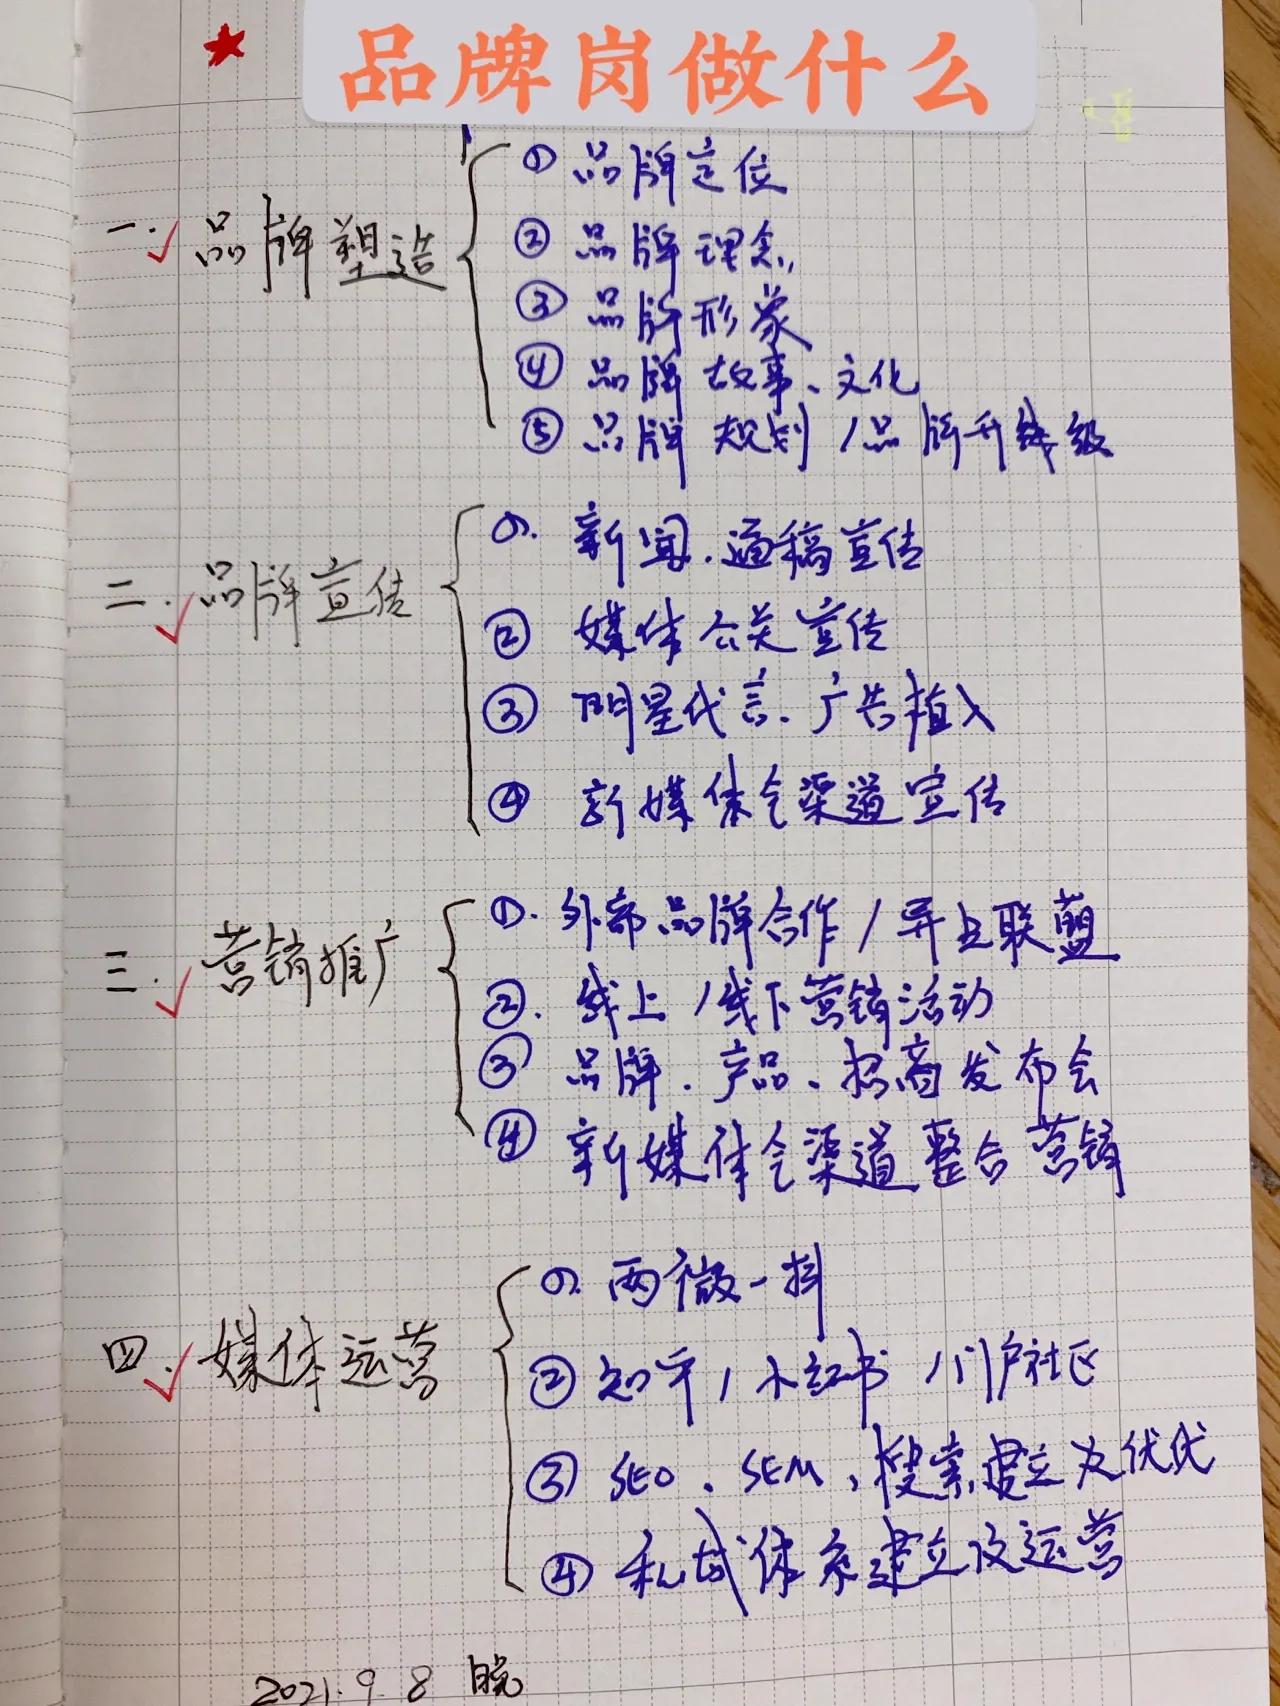 品牌岗做什么
一. 品牌塑造
① 品牌定位
② 品牌理念
③ 品牌形象
④ 品牌故事、文化
⑤ 品牌规划/品牌升级
二. 品牌宣传
①. 新闻.通稿宣传
② 媒体公关宣传
③ 明星代言.广告植入
④ 新媒体全渠道宣传
三. 营销推广
①. 外部品牌合作/异业联盟
②. 线上/线下营销活动
③ 品牌.产品、招商发布会
④ 新媒体全渠道整合营销
四. 媒体运营
①. 两微一抖
② 知乎/小红书/门户社区
③ SEO、SEM,搜索建立及优优
④ 私域体系建立及运营
2021.9.8